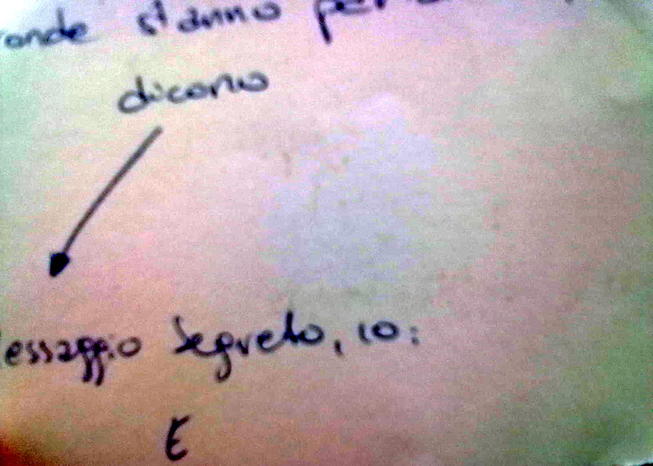 onde stanno per
dicono
essaggio segreto, io:
E